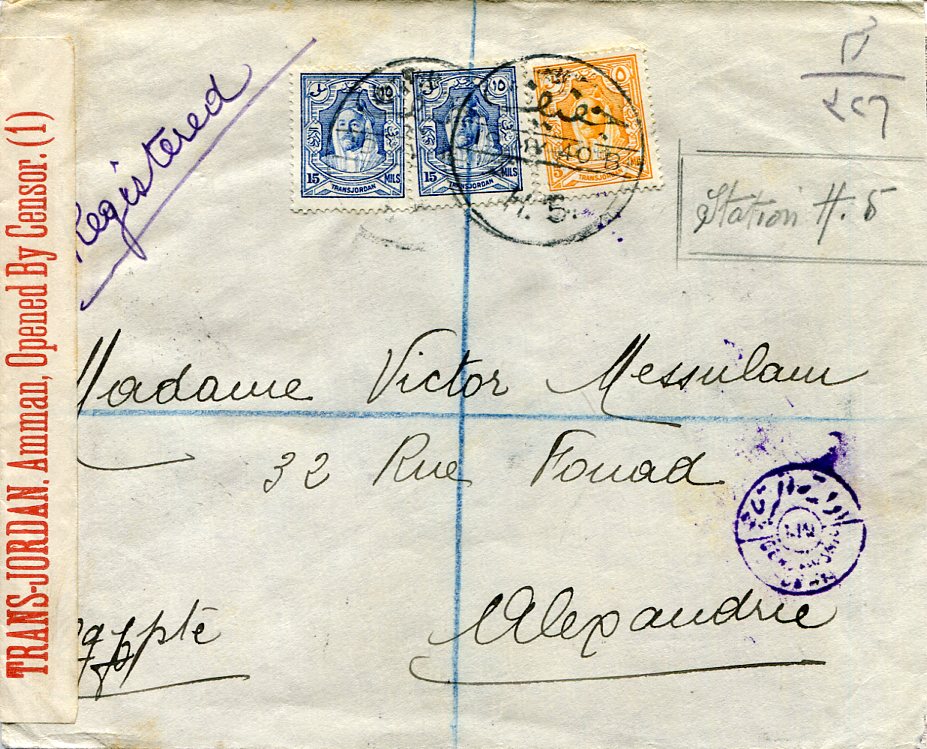 TRANS-JORDAN. Amman, Opened By Censor. (1)
Registered
١٥
١٥
٥
15 TRANSJORDAN MILS
15 TRANSJORDAN MILS
5 TRANSJORDAN
40 B
H. 5.
٢٤٦
Station H. 5
Madame Victor Messulam
32 Rue Fouad
Alexandrie
Egypte